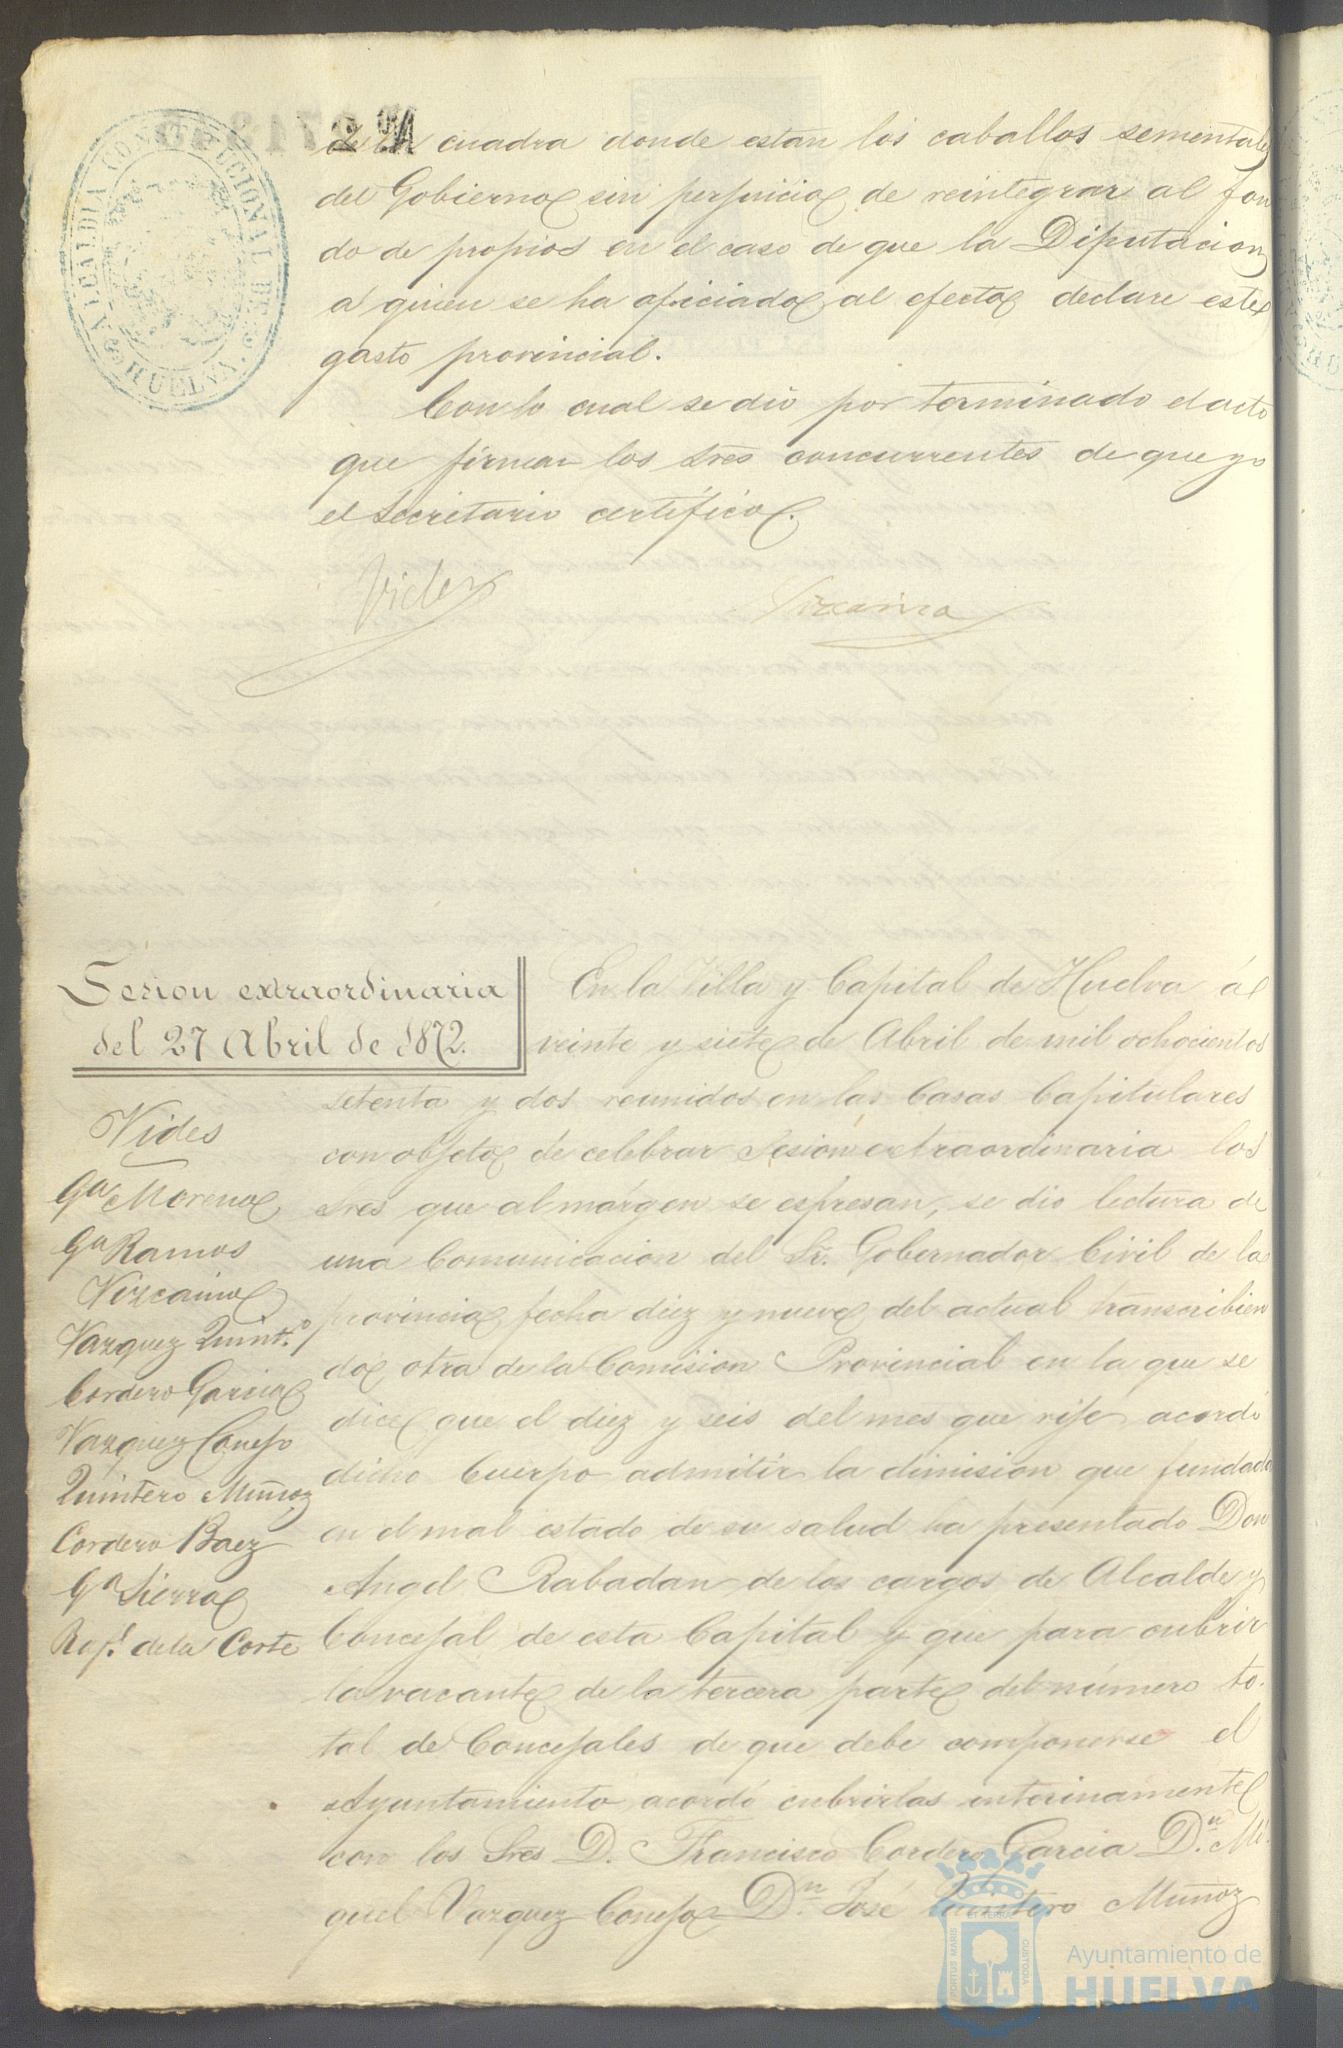 ALCALDIA CONSTITUCIONAL DE HUELVA
de la cuadra donde estan los caballos sementales
del Gobierno sin perjuicio de reintegrar al fon
do de propios en el caso de que la Diputacion
á quien se ha oficiado al efecto declare este
gasto provincial.
Con lo cual se dió por terminado el acto
que firman los Sres concurrentes de que yo
el Secretario certifico.
Vides
Vizcaino
Sesion extraordinaria
del 27 Abril de 1872.
Vides
Ga Moreno
Ga Ramos
Vizcaino
Vazquez Quint.o
Cordero Garcia
Vazquez Conejo
Quintero Muñoz
Cordero Baez
Ga Sierra
Raf.l de la Corte
En la Villa y Capital de Huelva á
veinte y siete de Abril de mil ochocientos
setenta y dos reunidos en las Casas Capitulares
con objeto de celebrar sesion extraordinaria los
Sres que al márgen se espresan, se dio lectura de
una Comunicacion del Sr. Gobernador Civil de la
provincia fecha diez y nueve del actual transcribien
do otra de la Comision Provincial en la que se
dice que el diez y seis del mes que rije acordó
dicho Cuerpo admitir la dimision que fundada
en el mal estado de su salud ha presentado Don
Angel Rabadan de los cargos de Alcalde y
Concejal de esta Capital y que para cubrir
la vacante de la tercera parte del número to-
tal de Concejales de que debe componerse el
Ayuntamiento acordó cubrirlas interinamente
con los Sres D. Francisco Cordero Garcia D.n Mi-
guel Vazquez Conejo D.n José Quintero Muñoz
PORTUS MARIS ET TERRAE CUSTODIA
Ayuntamiento de
HUELVA